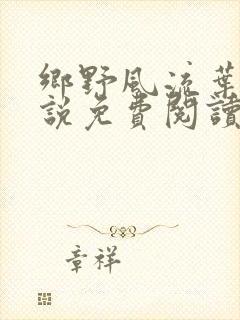 鄉野風流葉
說免費閱讀
章祥